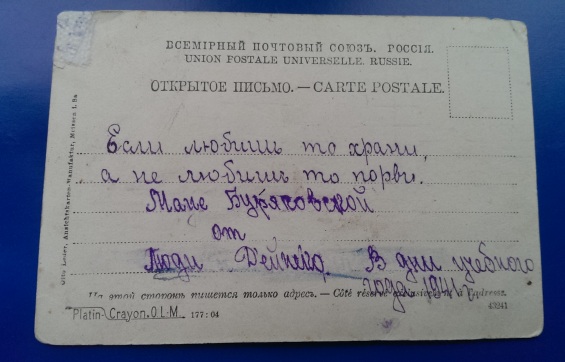 ВСЕМІРНЫЙ ПОЧТОВЫЙ СОЮЗЪ. РОССІЯ.
UNION POSTALE UNIVERSELLE. RUSSIE.
ОТКРЫТОЕ ПИСЬМО.—CARTE POSTALE.
Если любишь то храни,
а не любишь то порви.
Мане Буряковской
от
Люди Дейнего. В дни учебного
года 1941 г.
На этой сторонѣ пишется только адресъ. — Côté réservé exclusivement à l'adresse.
Platin-Crayon. O.L.M. 177:04
43241
Otto Leder, Ansichtskarten-Manufaktur, Meissen i. Sa